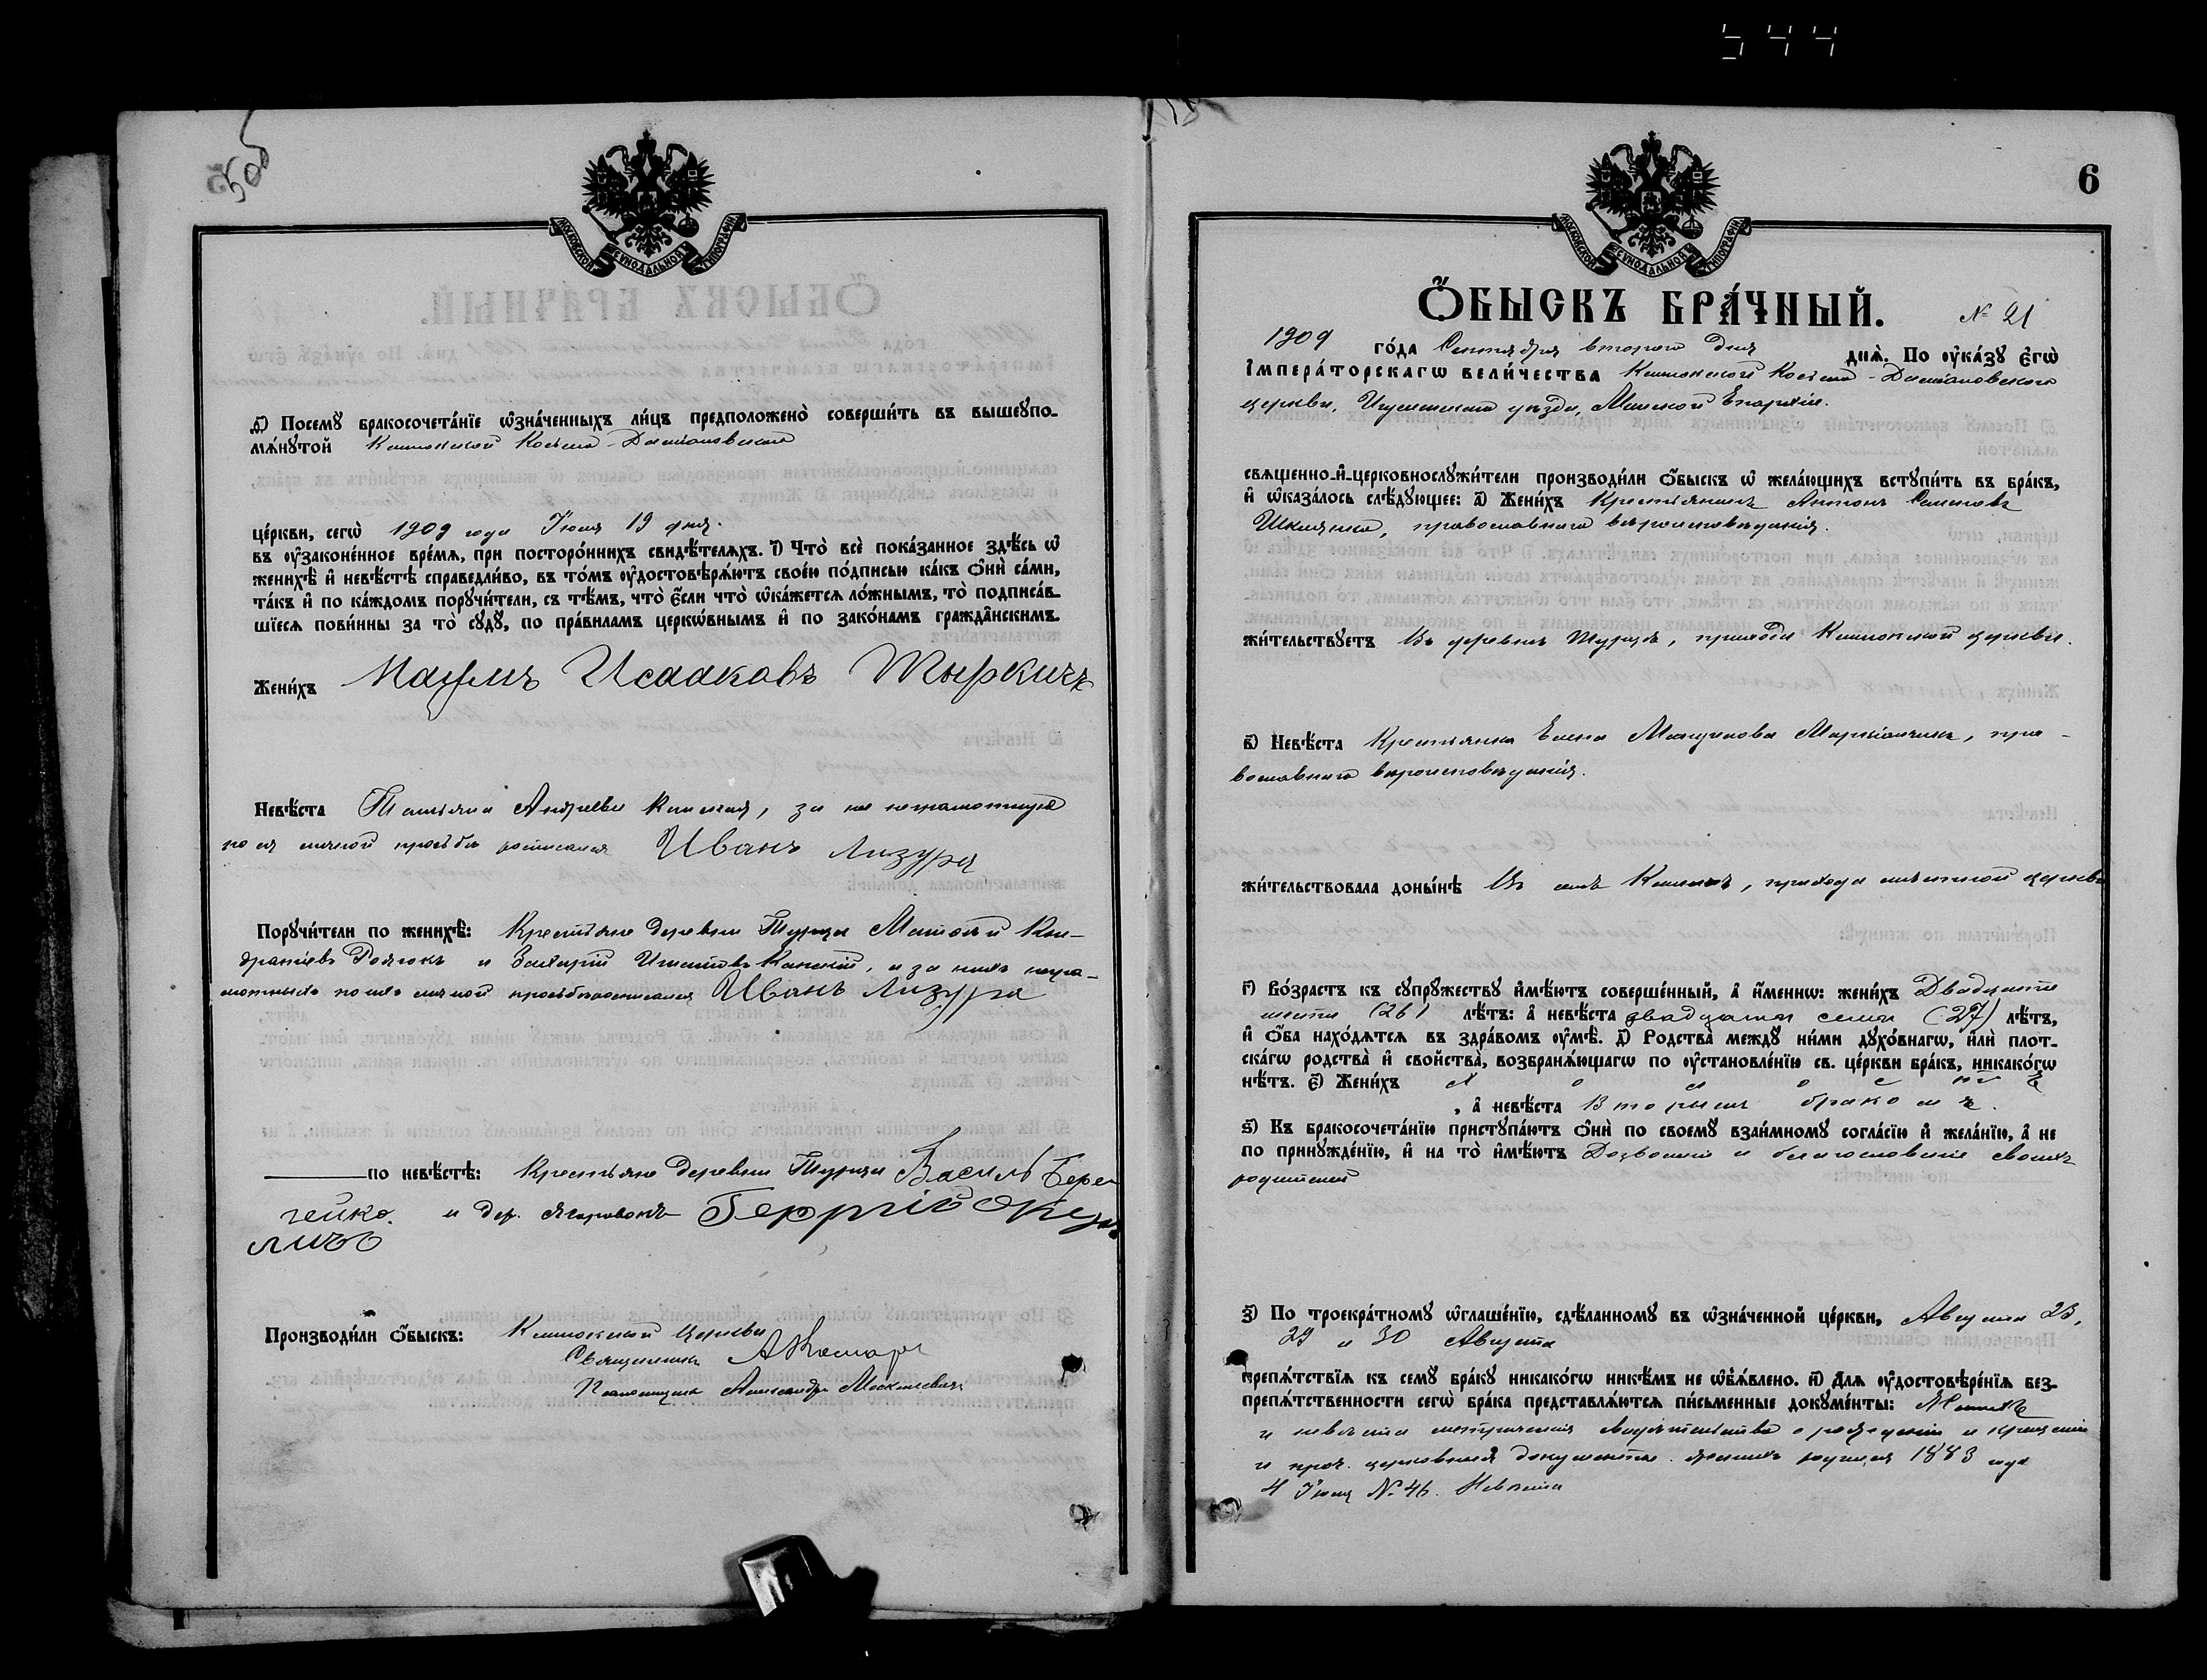 544
МОСКОВСКОЙ СѴНОДАЛЬНОЙ ТИПОГРАФІИ
Ѳ҃) Посемꙋ бракосочета́нїе ѡзна́ченныхъ ли́цъ предположено̀ соверши́ть въ вышеꙋпо-
мѧ́нꙋтой Клинокской Косьмо-Даміановской
це́ркви, сегѡ̀ 1909 года Іюля 19 дня.
въ ѹ҆законе́нное вре́мѧ, при посторо́ннихъ свидѣ́телѧхъ. І҃) Что̀ всѐ пока́занное здѣ́сь ѡ҆
женихѣ̀ и҆ невѣ́стѣ справедли́во, въ то́мъ ѹ҆достовѣрѧ́ютъ свое́ю по́дписью ка́къ ѻ҆нѝ са́ми,
та́къ и҆ по ка́ждомъ порꙋчи́тели, съ тѣ́мъ, что̀ є҆́сли что̀ ѡ҆ка́жетсѧ ло́жнымъ, то̀ подписа́в-
шїесѧ пови́нны за то̀ сꙋдꙋ̀, по пра́виламъ церкѡ́внымъ и҆ по зако́намъ гражда̂нскимъ.
Жени́хъ Наумъ Исааковъ Тыркичъ
Невѣ́ста Татьяна Андреева, за нее неграмотную
по ея личной просьбѣ росписался Иванъ Лизура
Порꙋчи́тели по женихѣ̀: Крестьяне деревни Турца Матвей Кон-
дратіевъ и Захарій Игнатовъ Канскій, а за нихъ негра-
мотныхъ по ихъ личной просьбѣ росписался Иванъ Лизура
по невѣ́стѣ: Крестьяне деревни Турца Василь Бере
гейко. и дер.
личъ
Производи́ли ѻ҆́быскъ: Клинокской церкви
Священникъ
Псаломщикъ Александръ
6
МОСКОВСКОЙ СѴНОДАЛЬНОЙ ТИПОГРАФІИ
Ѻ҆БЫСКЪ БРА́ЧНЫЙ. № 21
1909 го́да Сентября второго дня днѧ̀. По ѹ҆ка́зꙋ є҆гѡ̀
І҆мпера́торскагѡ вели́чества Клинокской Косьмо-Даміановской
церкви, Игуменскаго уѣзда, Минской Епархіи.
свѧщенно-и҆-церковнослꙋжи́тели производи́ли ѻ҆́быскъ ѡ҆ жела́ющихъ встꙋпи́ть въ бра́къ,
и҆ ѡ҆каза́лось слѣ́дꙋющее: а҃) Жени́хъ Крестьянинъ Антонъ Семеновъ
православнаго вѣроисповѣданія.
жи́тельствꙋетъ Въ деревнѣ Турцѣ, прихода Клинокской церкви.
в҃) Невѣ́ста Крестьянка Елена, пра-
вославнаго вѣроисповѣданія.
жи́тельствовала доны́нѣ Въ селѣ Клинкѣ, прихода мѣстной церкви
г҃) Во́зрастъ къ сꙋпрꙋ́жествꙋ и҆мѣ́ютъ соверше́нный, а҆ и҆́меннѡ: жени́хъ Двадцати
шести (26) лѣ́тъ: а҆ невѣ́ста двадцати семи (27) лѣ́тъ,
и҆ ѻ҆́ба нахо́дѧтсѧ въ здра́вомъ ѹ҆мѣ̀. д҃) Родства̀ междꙋ̀ ни́ми дꙋхо́внагѡ, и҆лѝ плот-
ска́гѡ родства̀ и҆ свойства̀, возбранѧ́ющагѡ по ѹ҆становле́нїю св. це́ркви бра́къ, никако́гѡ
нѣ́тъ. є҃) Жени́хъ холостъ
, а҆ невѣ́ста Вторымъ бракомъ.
ѕ҃) Къ бракосочета́нїю пристꙋпа́ютъ ѻ҆нѝ по своемꙋ̀ взаи́мномꙋ согла́сїю и҆ жела́нїю, а҆ не
по принꙋжде́нїю, и҆ на то̀ и҆мѣ́ютъ Дозволеніе и благословеніе своихъ
родителей
з҃) По троекра́тномꙋ ѡ҆глаше́нїю, сдѣ́ланномꙋ въ ѡ҆зна́ченной це́ркви, Августа 23,
29 и 30 Августа
препѧ́тствїѧ къ семꙋ̀ бра́кꙋ никако́гѡ никѣ́мъ не ѡ҆б̾ѧ́влено. и҃) Длѧ ѹ҆достовѣре́нїѧ без-
препѧ́тственности сегѡ̀ бра́ка представлѧ́ютсѧ пи́сьменные докꙋме́нты: Жениха
и невѣсты метрическія свидѣтельства о рожденіи и крещеніи
и проч. церковные документы. Женихъ родился 1883 года
4 Іюля № 46. Невѣста